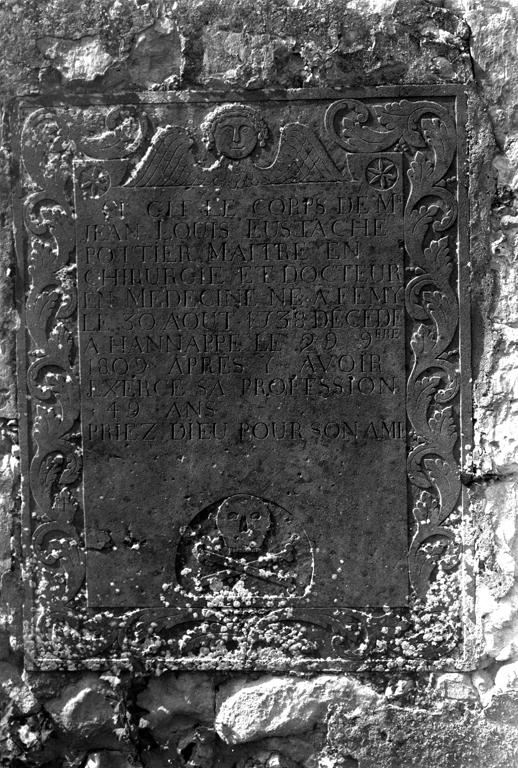 CI GIT LE CORPS DE Mr
JEAN LOUIS EUSTACHE
POTTIER MAITRE EN
CHIRURGIE ET DOCTEUR
EN MEDECINE NE A REMY
LE 30 AOUT 1738 DECEDE
A HANNAPPE LE 29 9BRE
1809 APRES Y AVOIR
EXERCE SA PROFESSION
49 ANS
PRIEZ DIEU POUR SON AME